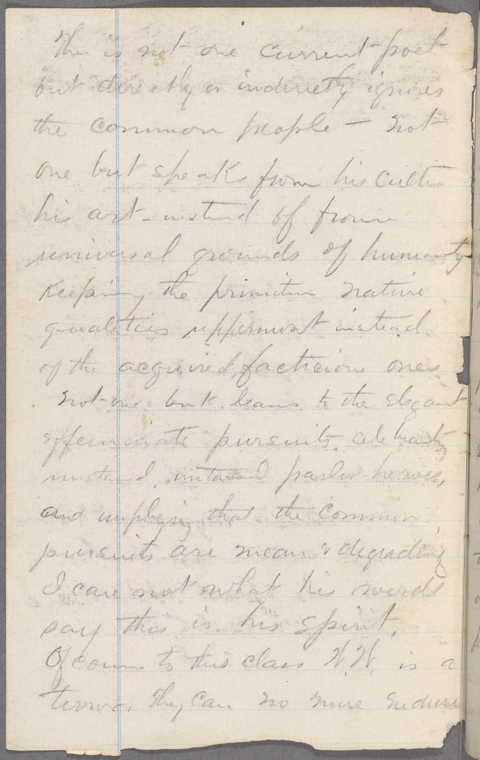 The is not one current poet
but directly or indirectly ignores
the common people — not
one but speaks from his culture
his art - instead of from
universal grounds of humanity
Keeping the primitive native
qualities uppermost instead
of the acquired, facticious ones.
Not one but leans to the elegant
effeminate pursuits, celebrating
instead parlor heroes,
and implying that the common
pursuits are mean & degrading
I care not what his words
say this is his spirit.
Of course to this class W.W. is a
terror. They can no more endure